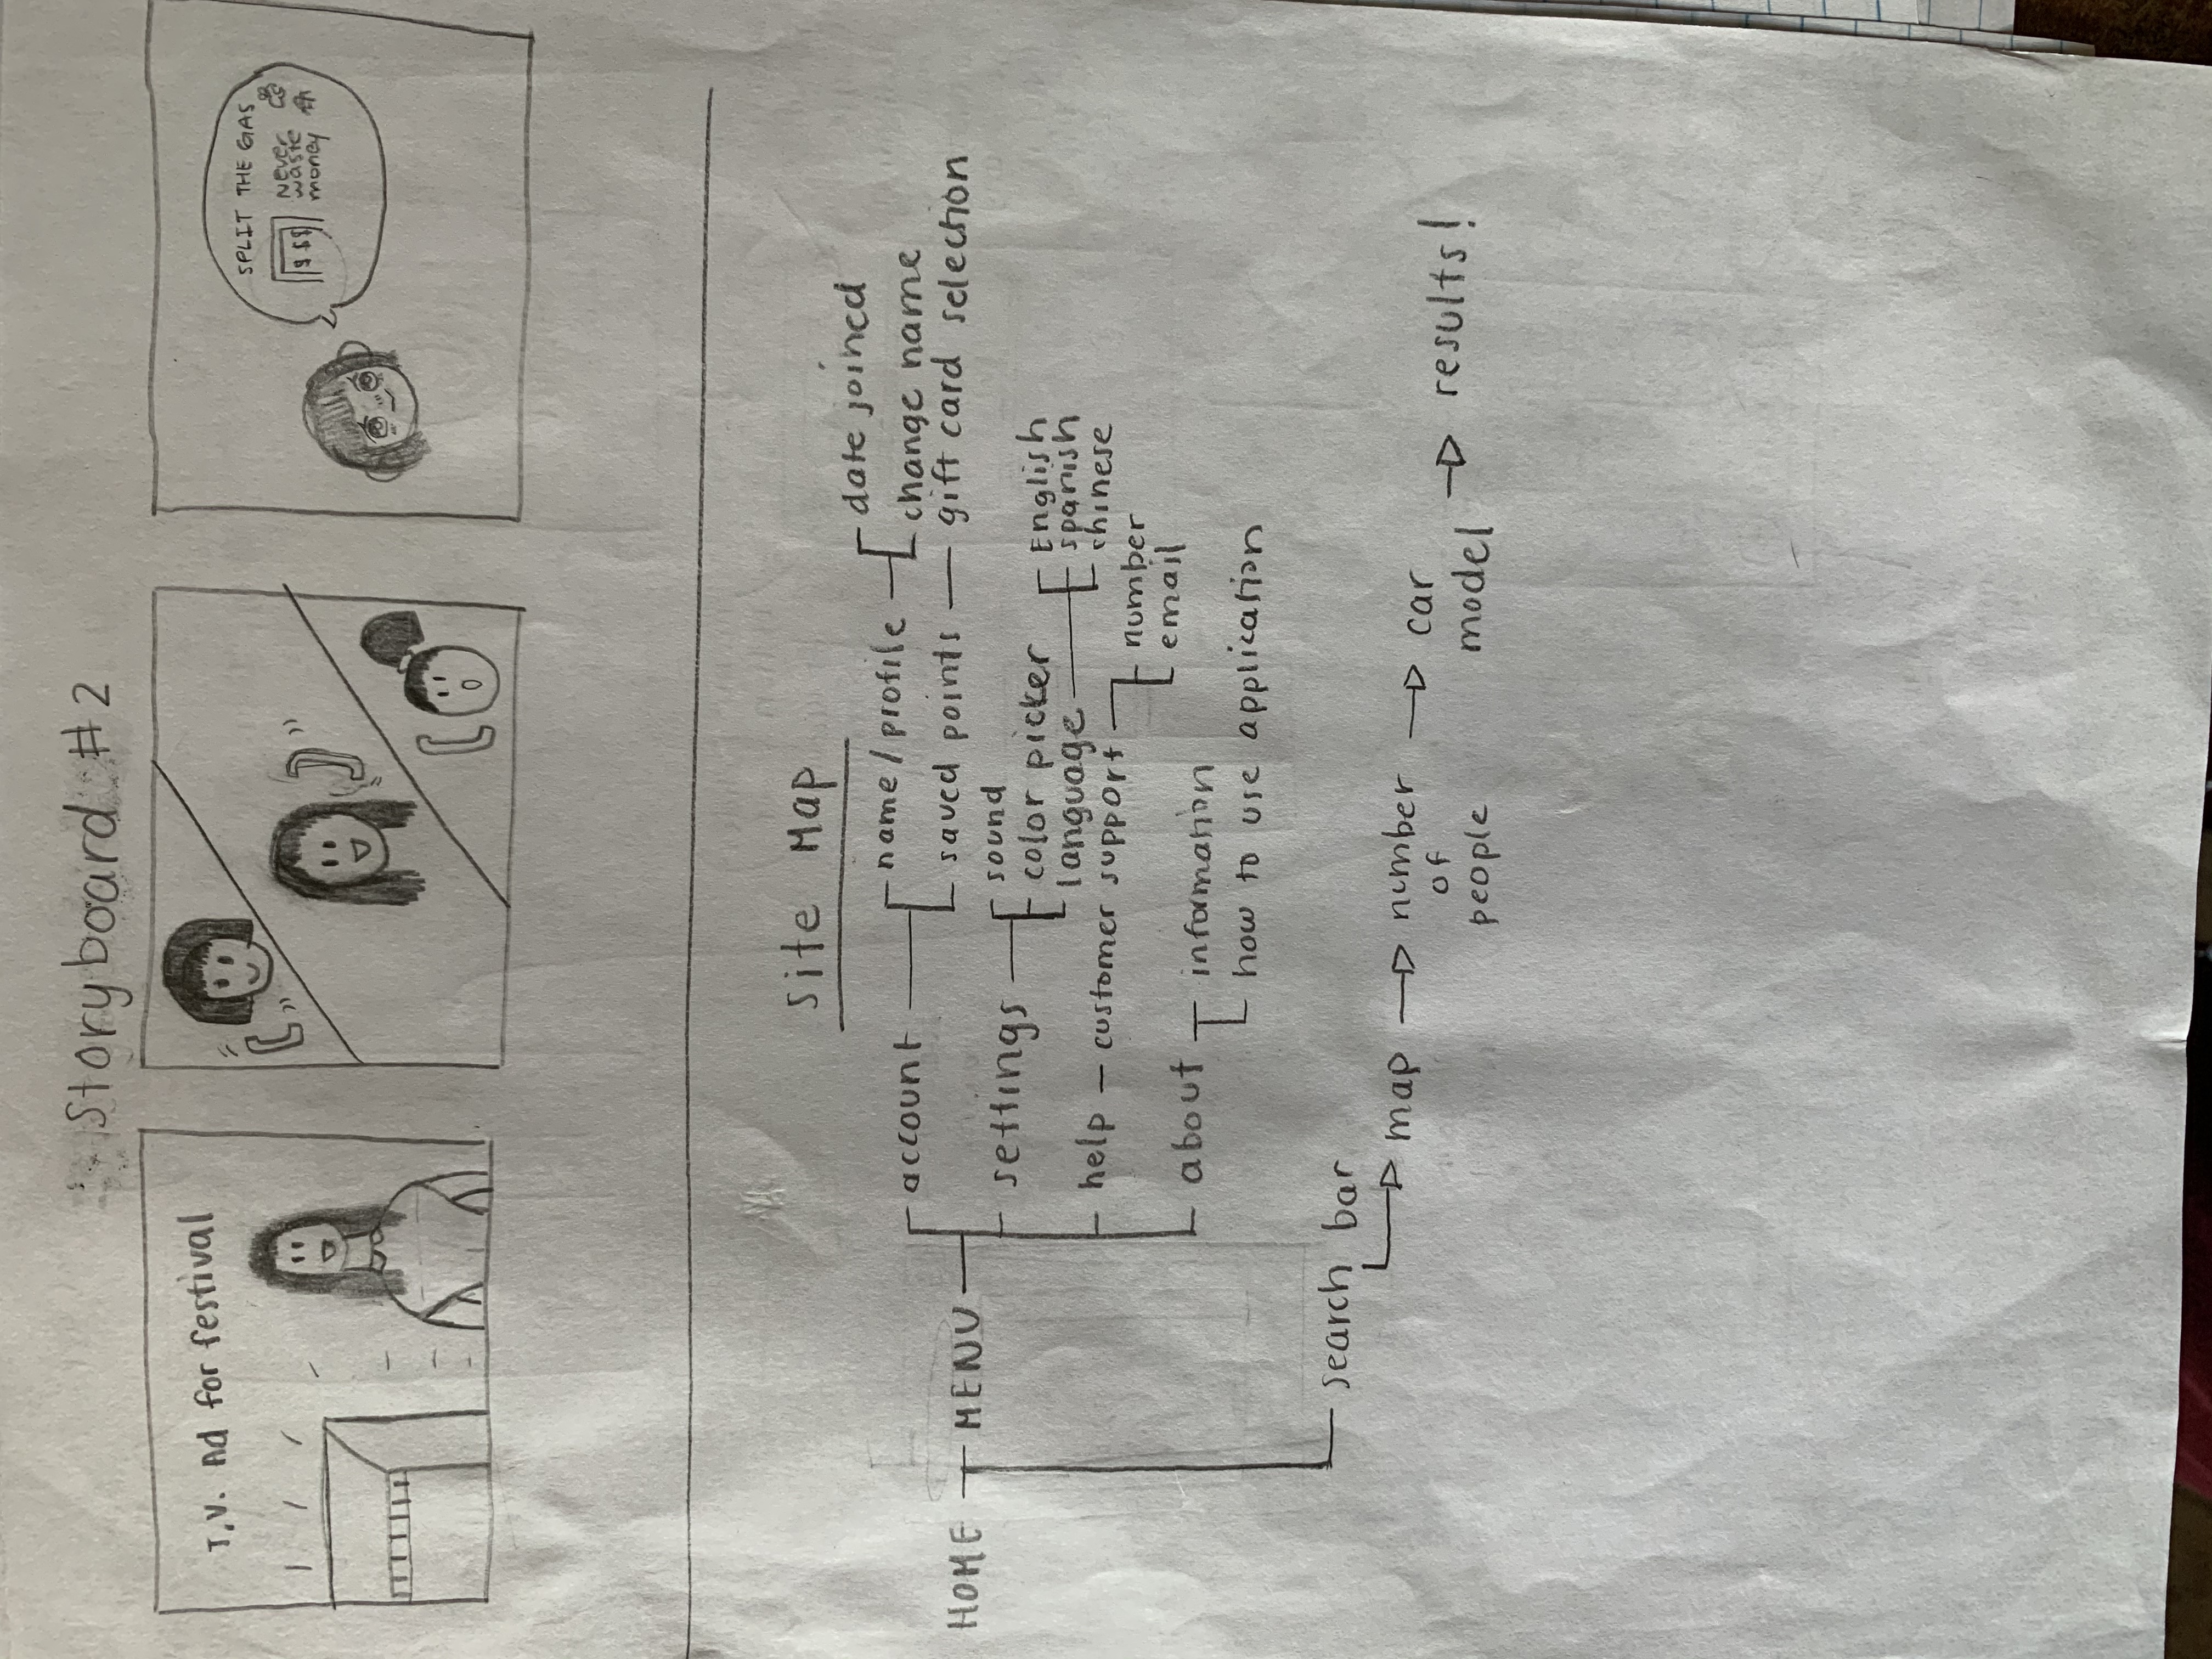 Storyboard #2
T.V. Ad for festival
SPLIT THE GAS
$ $$
Never
waste
money
Site Map
HOME
MENU
account
name / profile
date joined
change name
saved points
gift card selection
settings
sound
color picker
language
English
spanish
chinese
help
customer support
number
email
about
information
how to use application
search bar
map
number
of
people
car
model
results!